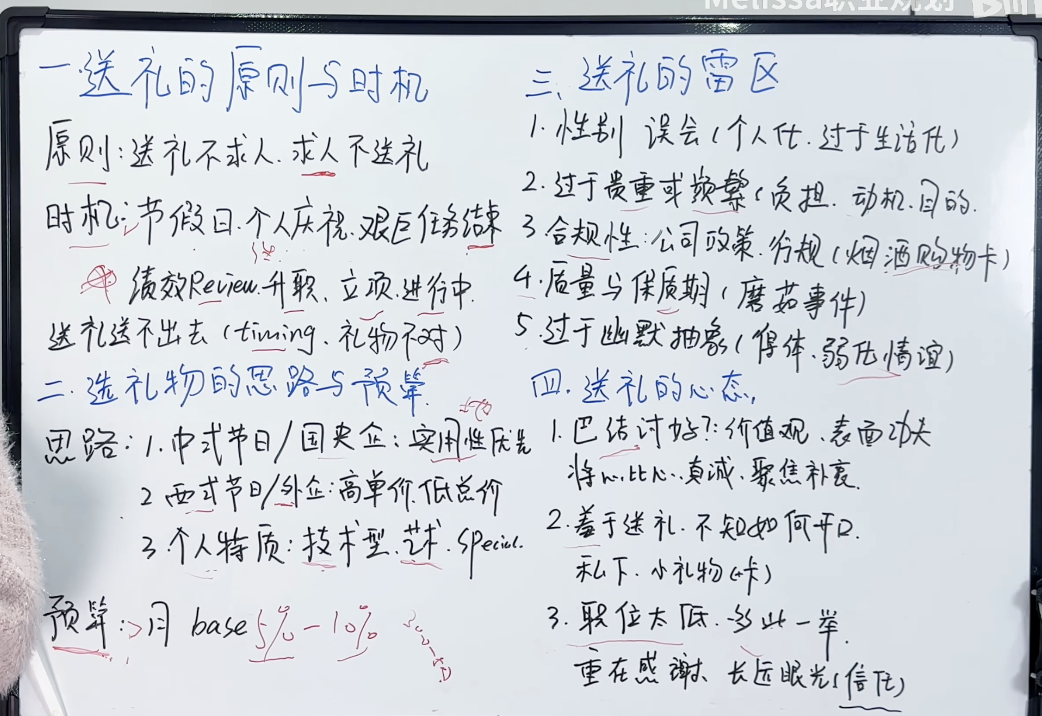 Melissa职业规划
一.送礼的原则与时机
原则:送礼不求人.求人不送礼
时机:节假日.个人庆祝.艰巨任务结束
绩效Review.升职、立项.进行中.
送礼送不出去(timing、礼物不对)
二.选礼物的思路与预算
思路:1.中式节日/国央企:实用性优先
2 西式节日/外企:高单价.低总价
3.个人特质:技术型.艺术.special.
预算:月 base 5%-10%
三、送礼的雷区
1.性别 误会(个人化.过于生活化)
2.过于贵重或频繁(负担.动机.目的.
3.合规性:公司政策.行规(烟酒购物卡)
4.质量与保质期(蘑菇事件)
5.过于幽默抽象(得体、弱化情谊)
四.送礼的心态,
1.巴结讨好?:价值观、表面功夫
将心比心、真诚、聚焦补衰.
2.羞于送礼.不知如何开口.
私下.小礼物(+卡)
3.职位太低.多此一举.
重在感谢、长远眼光(信任)